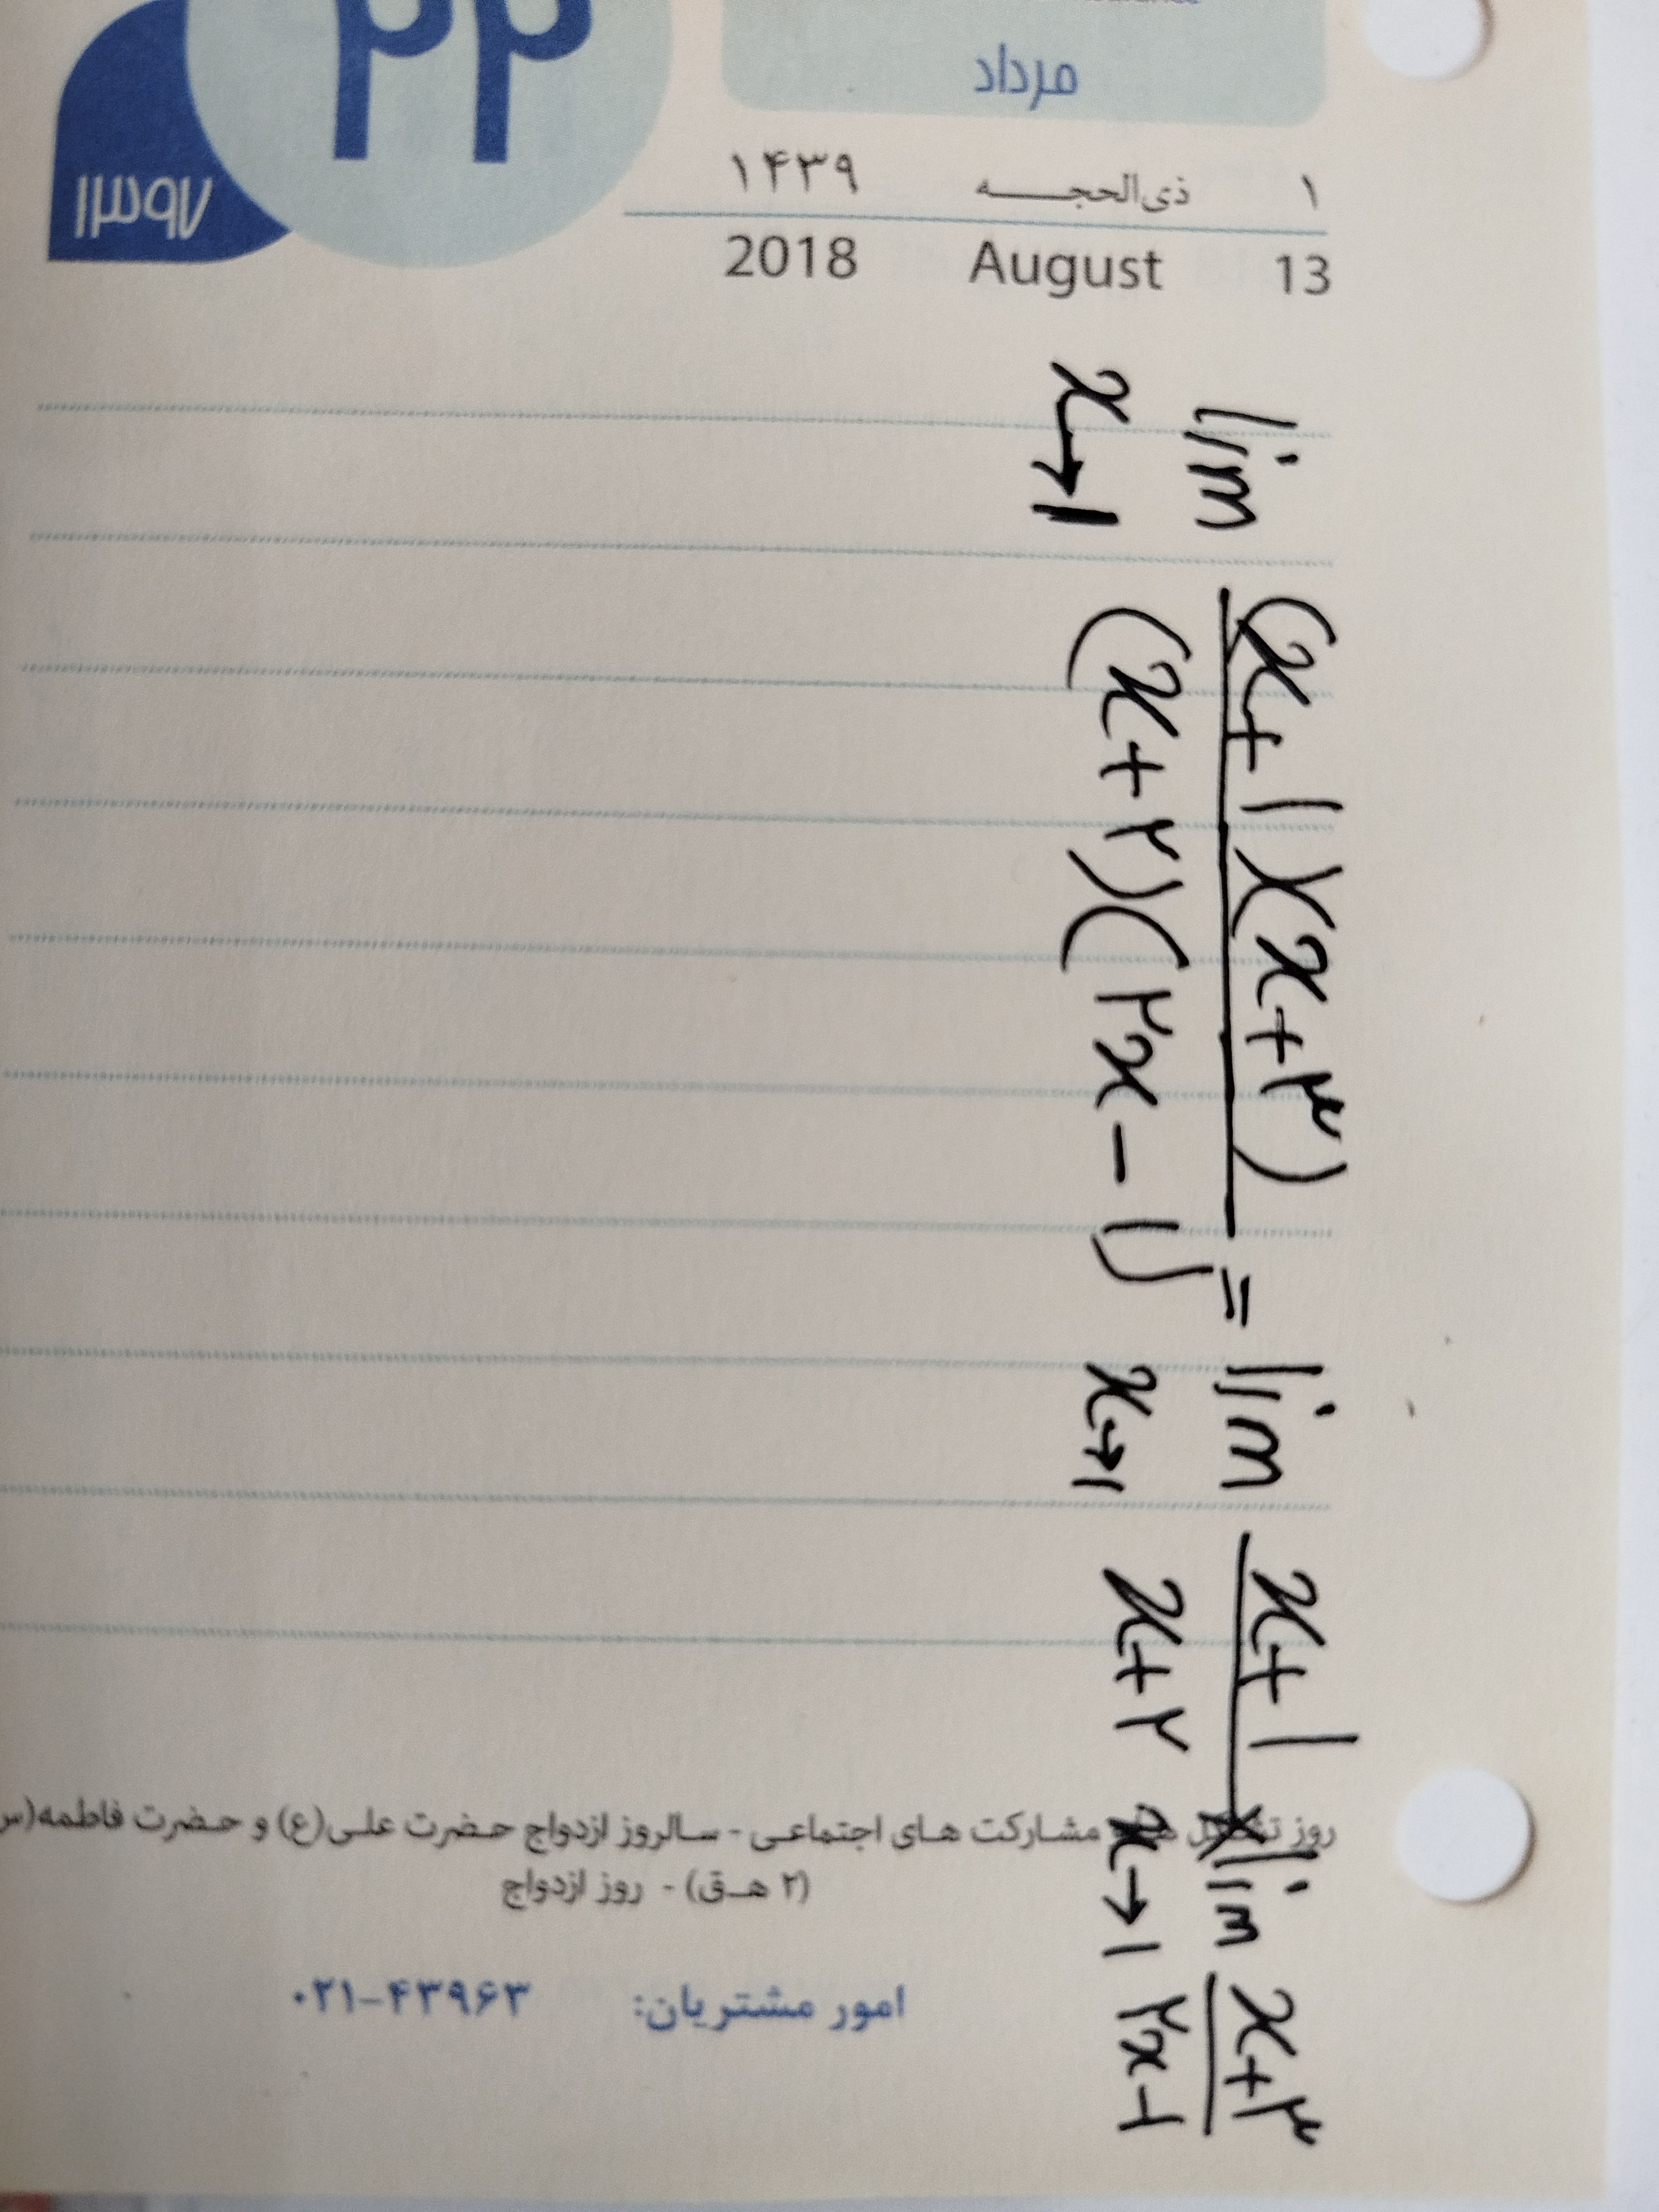 ۲۲
۱۳۹۷
مرداد
۱ ذی‌الحجه ۱۴۳۹
13 August 2018
lim x→1 (x+1)(x+۳) / (x+۲)(۲x-1) = lim x→1 x+1 / x+۲ × lim x→1 x+۳ / ۲x-1
روز مشارکت های اجتماعی - سالروز ازدواج حضرت علی(ع) و حضرت فاطمه(س
(۲ هـ.ق) - روز ازدواج
امور مشتریان: ۰۲۱-۴۳۹۶۳